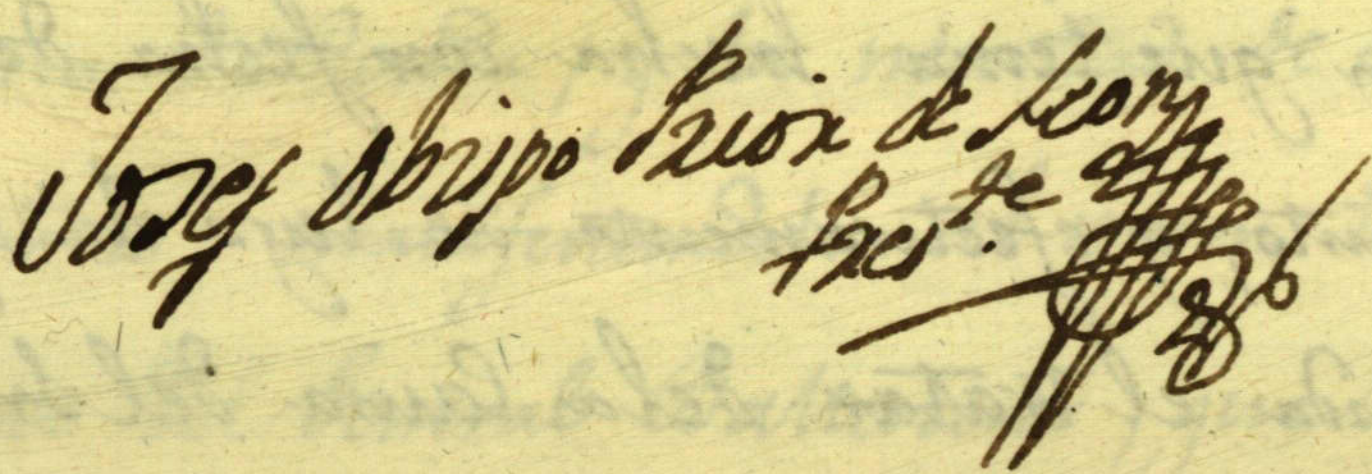 Josef obispo Prior de Leon
Pres.te